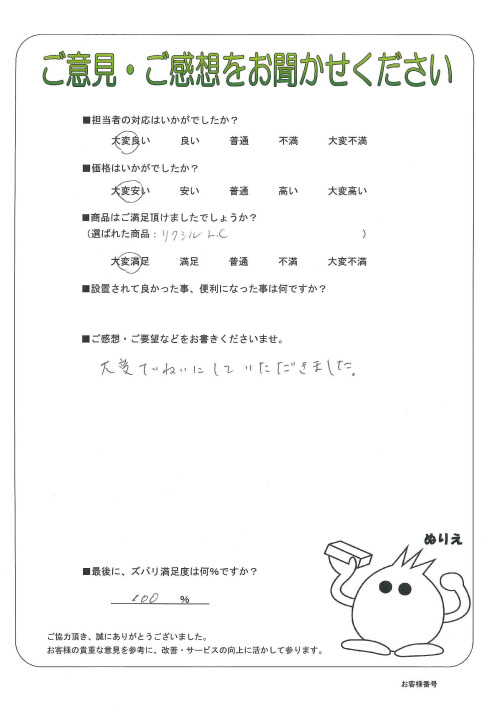 ご意見・ご感想をお聞かせください
■担当者の対応はいかがでしたか？
大変良い 良い 普通 不満 大変不満
■価格はいかがでしたか？
大変安い 安い 普通 高い 大変高い
■商品はご満足頂けましたでしょうか？
（選ばれた商品：リクシル LC ）
大変満足 満足 普通 不満 大変不満
■設置されて良かった事、便利になった事は何ですか？
■ご感想・ご要望などをお書きくださいませ。
大変ていねいにしていただきました。
ぬりえ
■最後に、ズバリ満足度は何%ですか？
100 %
ご協力頂き、誠にありがとうございました。
お客様の貴重な意見を参考に、改善・サービスの向上に活かして参ります。
お客様番号